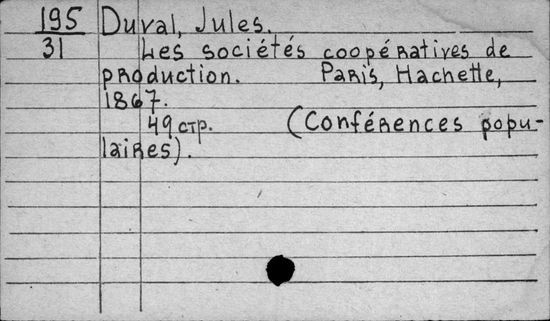 195 Duval, Jules.
31 Les sociétés coopératives de
production. Paris, Hachette,
1867.
49 стр. (Conférences popu-
laires).